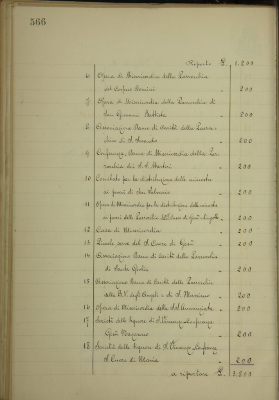 566
Riporto £. 1.200
6 Opera di Misericordia della Parrocchia
del Corpus Domini " 200
7 Opera di Misericordia della Parrocchia di
San Giovanni Battista " 200
8 Associazione Dame di Carità della Parro
chia di S. 200
9 Conferenza Dame di Misericordia della Par
rocchia dei S.S. Martiri " 200
10 Comitato per la distribuzione delle minestre
ai poveri di San Salvario " 200
11 Opera di Misericordia per la distribuzione delle minestre
ai poveri della Parrocchia " 200
12 Casa di Misericordia " 200
13 Piccole serve del S. Cuore di Gesù " 200
14 Associazione Dame di Carità della Parrocchia
di Santa Giulia " 200
15 Associazione Dame di Carità della Parrocchia
della B.V. degli Angeli e di S. Massimo " 200
16 Opera di Misericordia della SS. Annunziata " 200
17 Società delle Signore di S. Vincenzo Conferenza
Gesù Nazareno " 200
18 Società delle Signore di S. Vincenzo Conferenza
S. Cuore di Maria " 200
a riportare £. 3.800